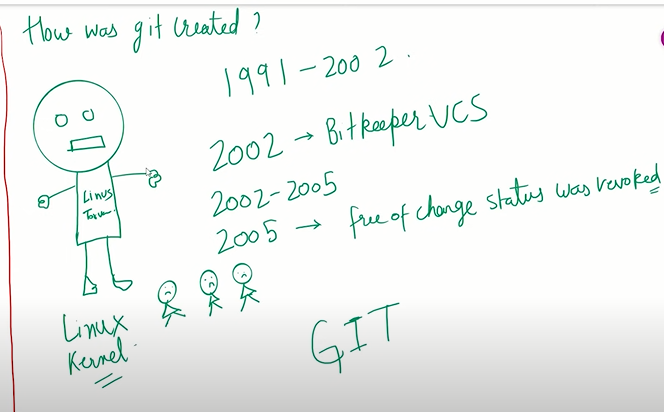 How was git created?
1991-2002.
2002 → Bitkeeper VCS
2002-2005
2005 → free of change status was revoked
Linus
Linux
Kernel.
GIT